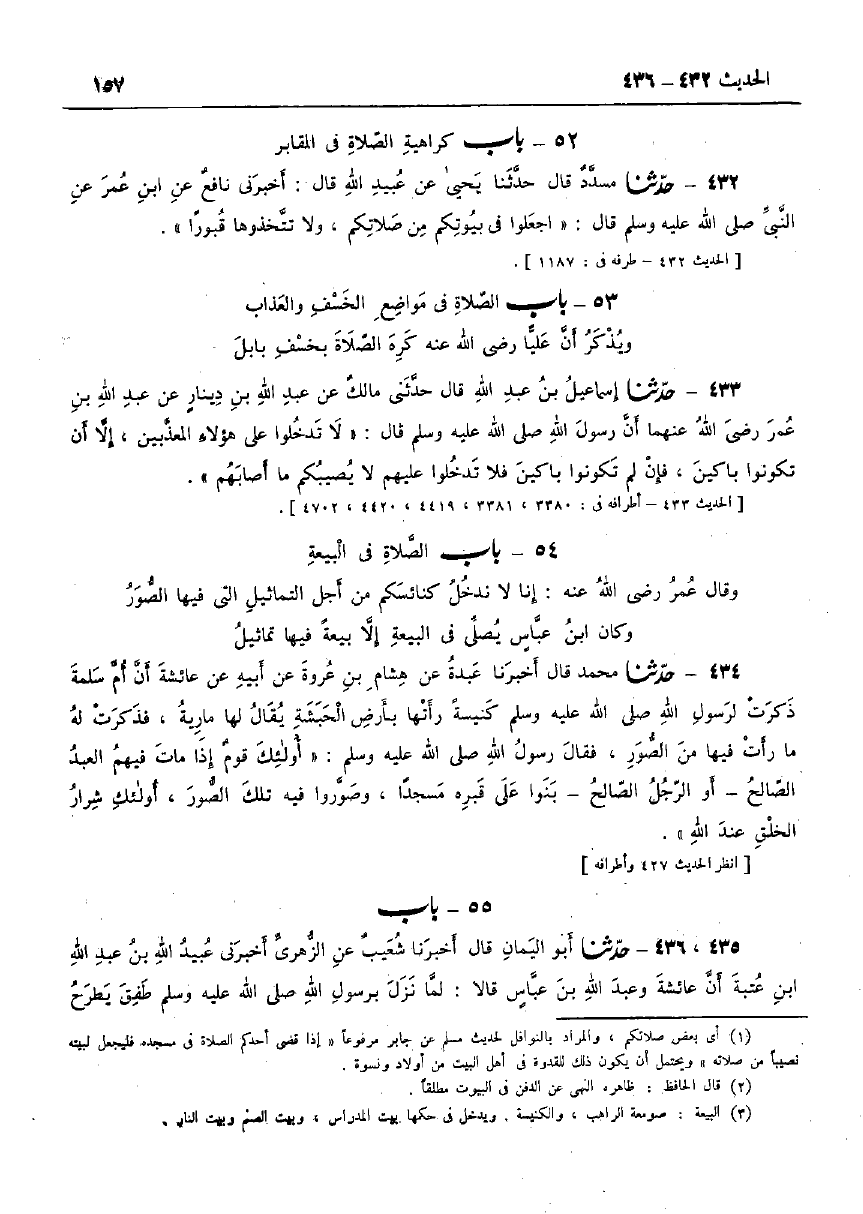 الحديث ٤٣٢ – ٤٣٦ ١٥٧
٥٢ – باب كراهيةِ الصَّلاةِ فى المقابر
٤٣٢ – حدّثنا مسدَّدٌ قال حدَّثَنا يَحيىٰ عن عُبيدِ اللهِ قال : أخبرَنى نافعٌ عنِ ابنِ عُمرَ عنِ
النَّبيِّ صلى الله عليه وسلم قال : « اجعَلوا فى بيُوتِكم مِن صَلاتِكم ، ولا تتَّخذوها قُبورًا » .
[ الحديث ٤٣٢ – طرفه فى : ١١٨٧ ] .
٥٣ – باب الصَّلاةِ فى مَواضِعِ الخَسْفِ والعَذاب
ويُذْكَرُ أنَّ عَليًّا رضى الله عنه كَرِهَ الصَّلَاةَ بخسْفِ بابلَ
٤٣٣ – حدّثنا إسماعيلُ بنُ عبدِ اللهِ قال حدَّثَنى مالكٌ عن عبدِ اللهِ بنِ دِينارٍ عن عبدِ اللهِ بنِ
عُمرَ رضىَ اللهُ عنهما أنَّ رسولَ اللهِ صلى الله عليه وسلم قال : « لَا تَدخُلوا على هؤلاءِ المعذَّبين ، إلَّا أن
تكونوا باكينَ ، فإنْ لم تَكونوا باكينَ فلا تَدخُلوا عليهم لا يُصيبُكم ما أصابَهُم » .
[ الحديث ٤٣٣ – أطرافه فى : ٣٣٨٠ ، ٣٣٨١ ، ٤٤١٩ ، ٤٤٢٠ ، ٤٧٠٢ ] .
٥٤ – باب الصَّلاةِ فى الْبِيعةِ
وقال عُمرُ رضى اللهُ عنه : إنا لا ندخُلُ كنائسَكم من أجل التماثيلِ التى فيها الصُّوَرُ
وكان ابنُ عبَّاسٍ يُصلِّى فى البيعةِ إلَّا بيعةً فيها تماثيلُ
٤٣٤ – حدّثنا محمد قال أخبرَنا عَبدةُ عن هِشامِ بنِ عُروةَ عن أبيهِ عن عائشةَ أنَّ أُمَّ سَلمةَ
ذَكرَتْ لرَسولِ اللهِ صلى الله عليه وسلم كَنيسةً رأتْها بأرضِ الْحَبَشَةِ يُقَالُ لها مارِيةُ ، فذَكرَتْ لهُ
ما رأتْ فيها منَ الصُّوَرِ ، فقالَ رسولُ اللهِ صلى الله عليه وسلم : « أُولٰئِكَ قومٌ إذا ماتَ فيهمُ العبدُ
الصّالحُ – أو الرَّجُلُ الصّالحُ – بَنَوا عَلَى قَبرِه مَسجدًا ، وصَوَّروا فيه تلكَ الصُّورَ ، أُولئكِ شِرارُ
الخلْقِ عندَ اللهِ » .
[ انظر الحديث ٤٢٧ وأطرافه ]
٥٥ – باب
٤٣٥ ، ٤٣٦ – حدّثنا أبو اليَمانِ قال أخبرَنا شُعَيبٌ عنِ الزُّهرىِّ أخبرَنى عُبيدُ اللهِ بنُ عبدِ اللهِ
ابنِ عُتبةَ أنَّ عائشةَ وعبدَ اللهِ بنَ عبَّاسٍ قالا : لمَّا نَزَلَ برسولِ اللهِ صلى الله عليه وسلم طَفِقَ يَطرَحُ
(١) أى بعض صلاتكم ، والمراد بالنوافل لحديث مسلم عن جابر مرفوعاً « إذا قضى أحدكم الصلاة فى مسجده فليجعل لبيته
نصيباً من صلاته » ويحتمل أن يكون ذلك للقدوة فى أهل البيت من أولاد ونسوة .
(٢) قال الحافظ : ظاهره النهى عن الدفن فى البيوت مطلقاً .
(٣) البيعة : صومعة الراهب ، والكنيسة . ويدخل فى حكمها بيت المدراس ، وبيت الصنم وبيت النار .